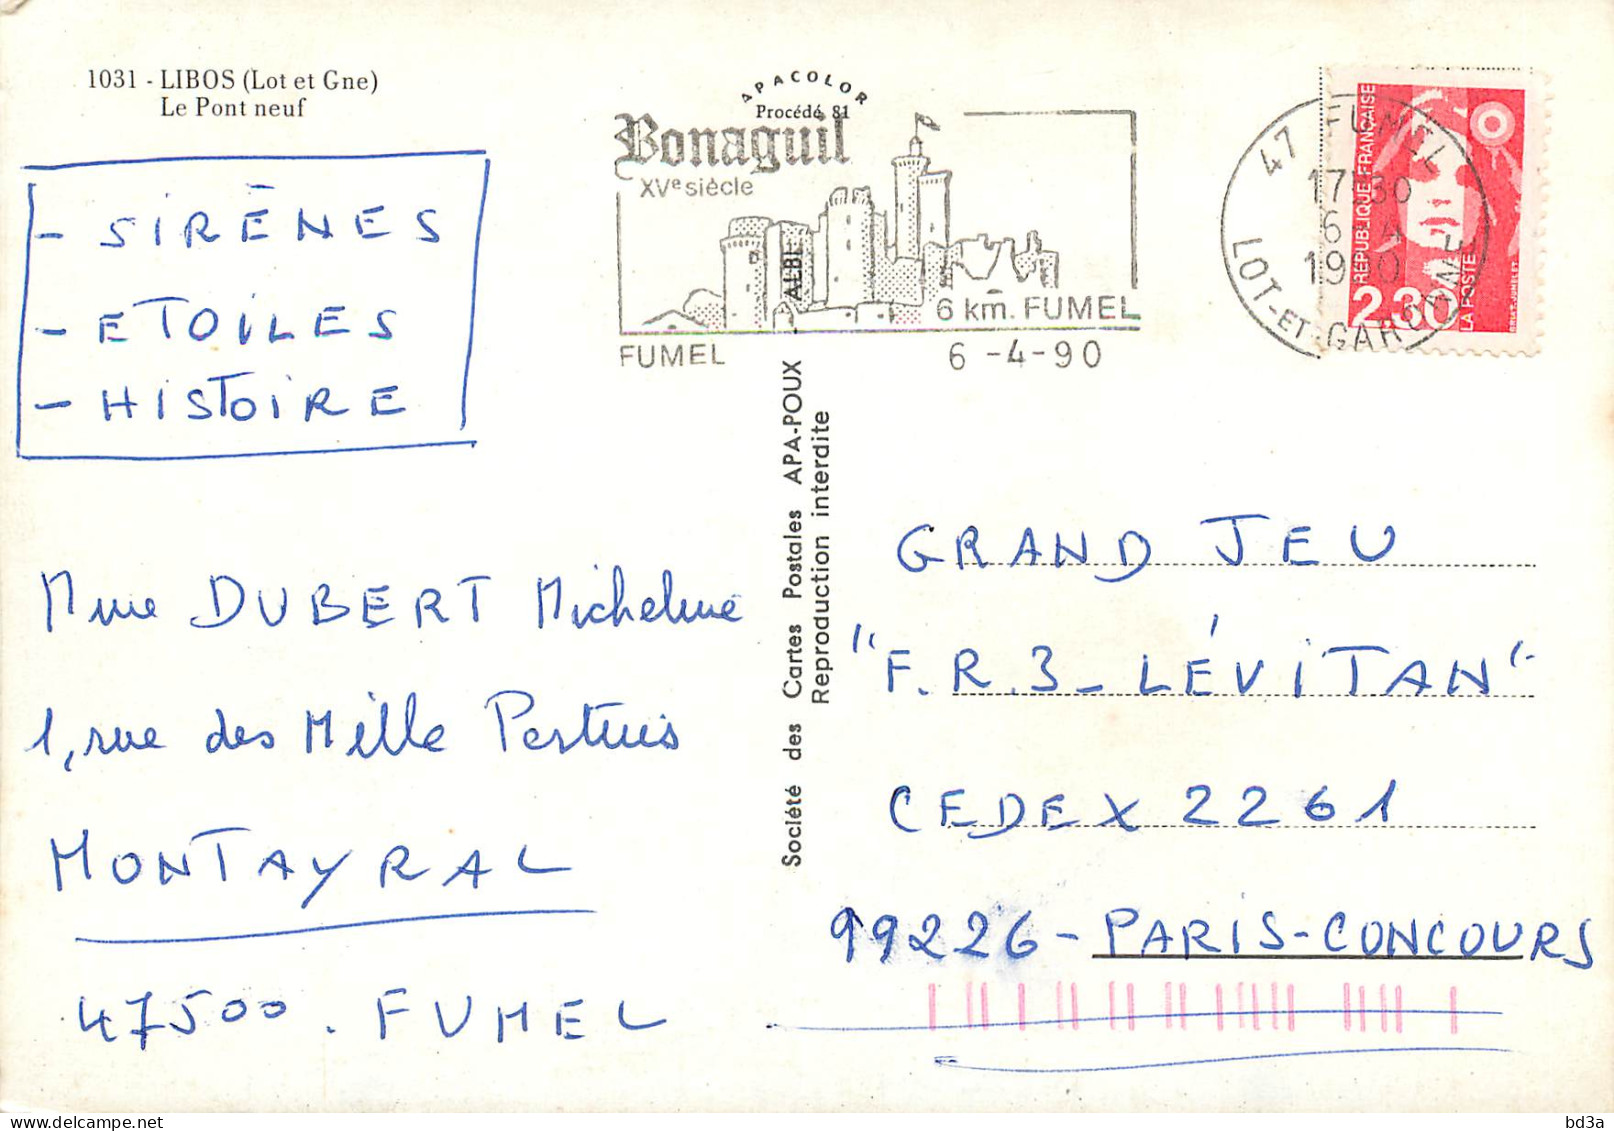 1031 - LIBOS (Lot et Gne)
Le Pont neuf
- SIRÈNES
- ETOILES
- HISTOIRE
Mme DUBERT Micheline
1, rue des Mille Pertuis
MONTAYRAL
47500 . FUMEL
APACOLOR
Procédé 81
Bonaguil
XVe siècle
6 km. FUMEL
FUMEL 6 -4-90
ALBI
Société des Cartes Postales APA-POUX
Reproduction interdite
47 FUMEL
17H30
6 - 4
1990
LOT-ET-GARONNE
REPUBLIQUE FRANÇAISE
2.30
LA POSTE
GRAND JEU
"F.R.3 - LÉVITAN"
CEDEX 2261
99226 - PARIS-CONCOURS
bd3a